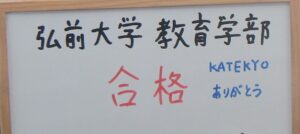 弘前大学 教育学部
合格
KATEKYO
ありがとう